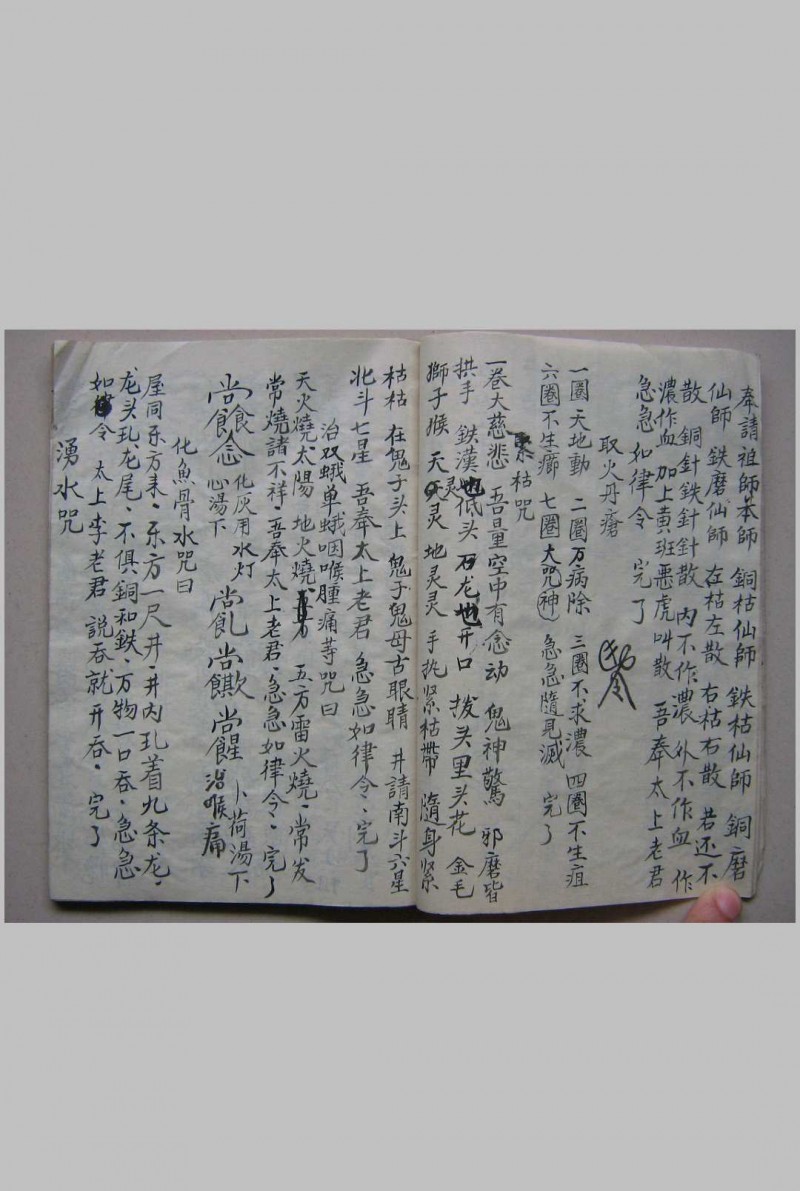 奉請祖師本師 銅枯仙師 鉄枯仙師 銅磨
仙師 鉄磨仙師 左枯左散 右枯右散 若还不
散 銅針鉄針針散 内不作濃 外不作血 作
濃作血 加上黄班悪虎叫散 吾奉太上老君
急急如律令 完了
取火丹瘡
一圏天地動 二圏万病除 三圏不求濃 四圏不生疽
六圏不生癤 七圏大咒神 急急隨見滅 完了
枯咒
一巻大慈悲 吾量空中有念动 鬼神驚 邪磨皆
拱手 鉄漢也低头 石龙也开口 拨头里头花 金毛
獅子猴 天灵灵 地灵灵 手扎紧枯帶 隨身紧
枯枯 在鬼子头上 鬼子鬼母古眼睛 井請南斗六星
北斗七星 吾奉太上老君 急急如律令、完了
治双蛾单蛾咽喉腫痛䓁咒曰
天火燒太陽 地火燒方 五方雷火燒、常发
常燒諸不祥、吾奉太上老君、急急如律令、完了
化灰用水灯
心湯下
卜荷湯下
治喉痛
化魚骨水咒曰
屋同东方来、东方一尺井、井内孔着九条龙、
龙头孔龙尾、不俱銅和鉄、万物一口吞、急急
如令 太上李老君 説吞就开吞、完了
湧水咒